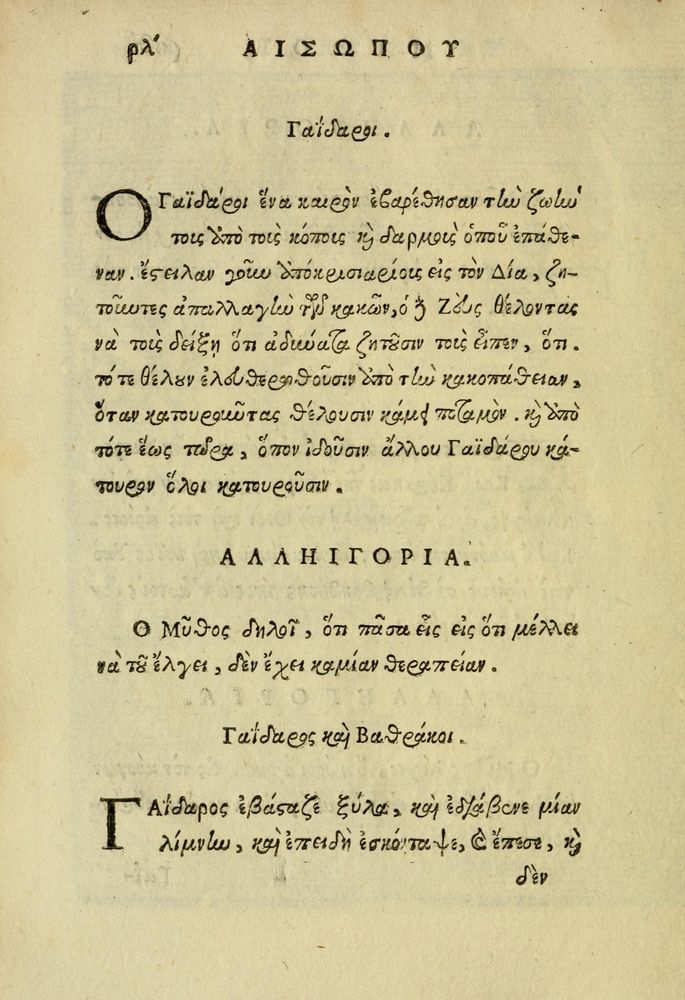 ρλ΄ ΑΙΣΩΠΟΥ
Γαΐδαροι.
Ο Γαϊδάροι ἕνα καιρὸν ἐβαρέθησαν τὴν ζωὴν
τοις ὑπὸ τοὶς κόποις καὶ δαρμοὶς ὁποῦ ἐπάθε-
ναν. ἔστειλαν γοῦν ὑπόκρισιαρίους εἰς τὸν Δία, ζη-
τοῦντες ἀπαλλαγὴν τῶν κακῶν, ὁ δὲ Ζεὺς θέλοντας
νὰ τοὶς δείξῃ ὅτι ἀδύνατα ζητοῦσιν τοὶς εἶπεν, ὅτι.
τότε θέλουν ἐλευθερωθοῦσιν ὑπὸ τὴν κακοπάθειαν,
ὅταν κατουρῶντας θέλουσιν κάμει ποταμὸν. καὶ ὑπὸ
τότε ἕως τώρα, ὅπου ἰδοῦσιν ἄλλου Γαϊδάρου κά-
τουρον ὅλοι κατουροῦσιν.
ΑΛΛΗΙΓΟΡΙΑ.
Ο Μῦθος δηλοῖ, ὅτι πᾶσα εἷς εἰς ὅτι μέλλει
νὰ τοῦ ἔλγει, δὲν ἔχει καμίαν θεραπείαν.
Γαΐδαρος καὶ Βαθράκοι.
ΓΑΐδαρος ἐβάσταζε ξύλα, καὶ ἐδιάβαινε μίαν
λίμνην, καὶ ἐπειδὴ ἐσκόνταψε, καὶ ἔπεσε, καὶ
δὲν